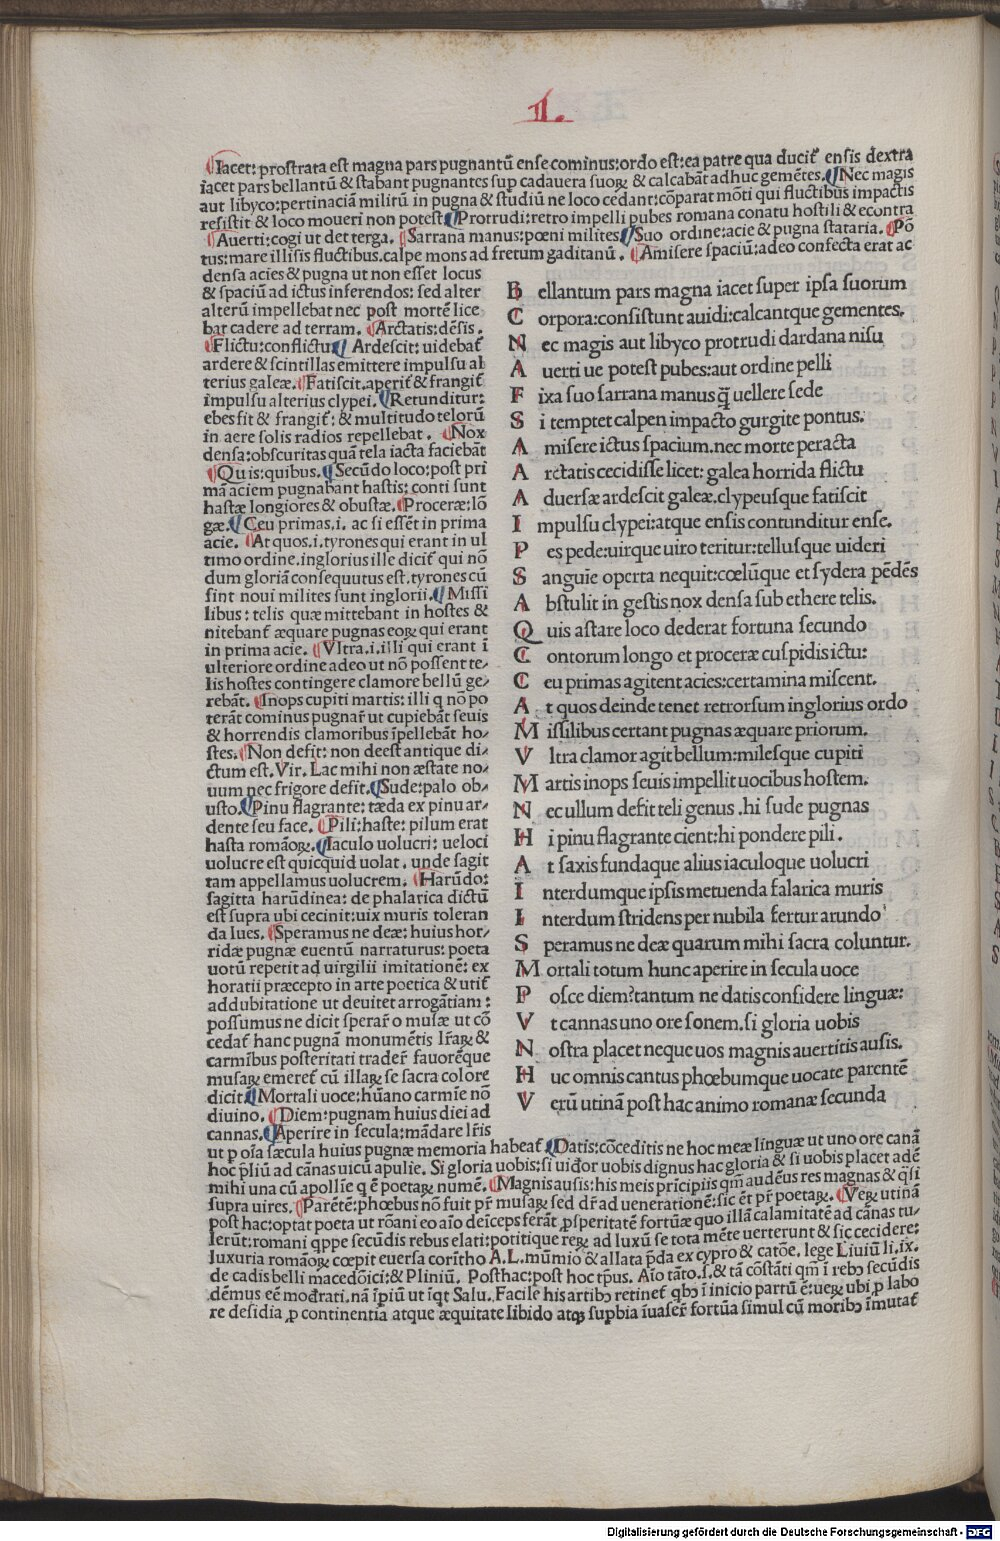 I.
Iacet: prostrata est magna pars pugnantū ense cominus: ordo est: ea patre qua ducit᷑ ensis dextra
iacet pars bellantū & stabant pugnantes sup cadauera suoꝝ & calcabāt adhuc gemētes. Nec magis
aut libyco: pertinaciā militū in pugna & studiū ne loco cedant: cōparat mōti qui fluctibus impactis
resistit & loco moueri non potest Protrudi: retro impelli pubes romana conatu hostili & econtra
Auerti: cogi ut det terga. Sarrana manus: pœni milites Suo ordine: acie & pugna stataria. Pō
tus: mare illisis fluctibus. calpe mons ad fretum gaditanū. Amisere spaciū: adeo confecta erat ac
densa acies & pugna ut non esset locus
& spaciū ad ictus inferendos: sed alter
alterū impellebat nec post mortē lice
bat cadere ad terram. Arctatis: dēsis.
Flictu: conflictu Ardescit: uidebat᷑
ardere & scintillas emittere impulsu al
terius galeæ. Fatiscit. aperit᷑ & frangit᷑
impulsu alterius clypei. Retunditur:
ebes fit & frangit᷑: & multitudo telorū
in aere solis radios repellebat. Nox
densa: obscuritas quā tela iacta faciebāt
Quis: quibus. Secūdo loco: post pri
mā aciem pugnabant hastis: conti sunt
hastæ longiores & obustæ. Proceræ: lō
gæ. Ceu primas. i. ac si essēt in prima
acie. At quos. i. tyrones qui erant in ul
timo ordine. inglorius ille dicit᷑ qui nō
dum gloriā consequutus est. tyrones cū
sint noui milites sunt inglorii. Missi
libus: telis quæ mittebant in hostes &
nitebant᷑ æquare pugnas eoꝝ qui erant
in prima acie. Vltra. i. illi qui erant ī
ulteriore ordine adeo ut nō possent te-
lis hostes contingere clamore bellū ge-
rebāt. Inops cupiti martis: illi q nō po
terāt cominus pugnar᷑ ut cupiebāt seuis
& horrendis clamoribus īpellebāt ho-
stes. Non defit: non deest antique di-
ctum est. Vir. Lac mihi non æstate no-
uum nec frigore defit. Sude: palo ob-
usto. Pinu flagrante: tæda ex pinu ar-
dente seu face. Pili: haste: pilum erat
hasta romāoꝝ. Iaculo uolucri: ueloci
uolucre est quicquid uolat. unde sagit
tam appellamus uolucrem. Harūdo:
sagitta harūdinea: de phalarica dictū
est supra ubi cecinit: uix muris toleran
da lues. Speramus ne deæ: huius hor-
ridæ pugnæ euentū narraturus: poeta
uotū repetit ad uirgilii imitationē: ex
horatii præcepto in arte poetica & utit᷑
addubitatione ut deuitet arrogātiam:
possumus ne dicit sperar᷑ o musæ ut cō
cedat᷑ hanc pugnā monumētis lr̄aꝝ &
carmībus posteritati trader᷑ fauorēque
musaꝝ emeret᷑ cū illaꝝ se sacra colore
dicit Mortali uoce: hūano carmīe nō
diuino. Diem: pugnam huius diei ad
cannas. Aperire in secula: mādare lr̄is
B ellantum pars magna iacet super ipsa suorum
C orpora: consistunt auidi: calcantque gementes.
N ec magis aut libyco protrudi dardana nisu
A uerti ue potest pubes: aut ordine pelli
F ixa suo sarrana manus q̄ uellere sede
S i temptet calpen impacto gurgite pontus.
A misere ictus spacium. nec morte peracta
A rctatis cecidisse licet: galea horrida flictu
A duersæ ardescit galeæ. clypeusque fatiscit
I mpulsu clypei: atque ensis contunditur ense.
P es pede: uirque uiro teritur: tellusque uideri
S anguie operta nequit: cœlūque et sydera pēdēs
A bstulit in gestis nox densa sub ethere telis.
Q uis astare loco dederat fortuna secundo
C ontorum longo et proceræ cuspidis ictu:
C eu primas agitent acies: certamina miscent.
A t quos deinde tenet retrorsum inglorius ordo
M issilibus certant pugnas æquare priorum.
V ltra clamor agit bellum: milesque cupiti
M artis inops seuis impellit uocibus hostem.
N ec ullum defit teli genus. hi sude pugnas
H i pinu flagrante cient: hi pondere pili.
A t saxis fundaque alius iaculoque uolucri
I nterdumque ipsis metuenda falarica muris
I nterdum stridens per nubila fertur arundo
S peramus ne deæ quarum mihi sacra coluntur.
M ortali totum hunc aperire in secula uoce
P osce diem? tantum ne datis confidere linguæ:
V t cannas uno ore sonem. si gloria uobis
N ostra placet neque uos magnis auertitis ausis.
H uc omnis cantus phœbumque uocate parentē
V erū utinā post hac animo romanæ secunda
ut p oīa sæcula huius pugnæ memoria habeat᷑ Datis: cōceditis ne hoc meæ linguæ ut uno ore canā
hoc p̄liū ad cānas uicū apulie. Si gloria uobis: si uidēor uobis dignus hac gloria & si uobis placet adē
mihi una cū apollīe q ē poetaꝝ numē. Magnis ausis: his meis prīcipiis qm̄ audēus res magnas & q̄si
supra uires. Parētē: phœbus nō fuit pr᷑ musaꝝ sed dr᷑ ad uenerationē: sic ēt pr᷑ poetaꝝ. Veꝝ utinā
post hac: optat poeta ut rōani eo aīo deīceps ferāt ꝓsperitatē fortūæ quo illā calamitatē ad cānas tu-
lerūt: romani qppe secūdis rebus elati: potitique reꝝ ad luxū se tota mēte uerterunt & sic cecidere:
luxuria romāoꝝ cœpit euersa corītho A. L. mūmio & allata p̄da ex cypro & catōe. lege Liuiū li. ix.
de cadis belli macedōici: & Pliniū. Posthac: post hoc tp̄us. Aīo tāto. s. & tā cōstāti qm̄ ī rebꝰ secūdis
dēmus eē mođrati. nā īpiū ut īq̄t Salu. Facile his artibꝰ retinet᷑ qbꝰ ī inicio partū ē: ueꝝ ubi p labo
re desidia ꝓ continentia atque æquitate libido atqꝫ supbia īuaser᷑ fortūa simul cū moribꝰ īmutat᷑
Digitalisierung gefördert durch die Deutsche Forschungsgemeinschaft - DFG